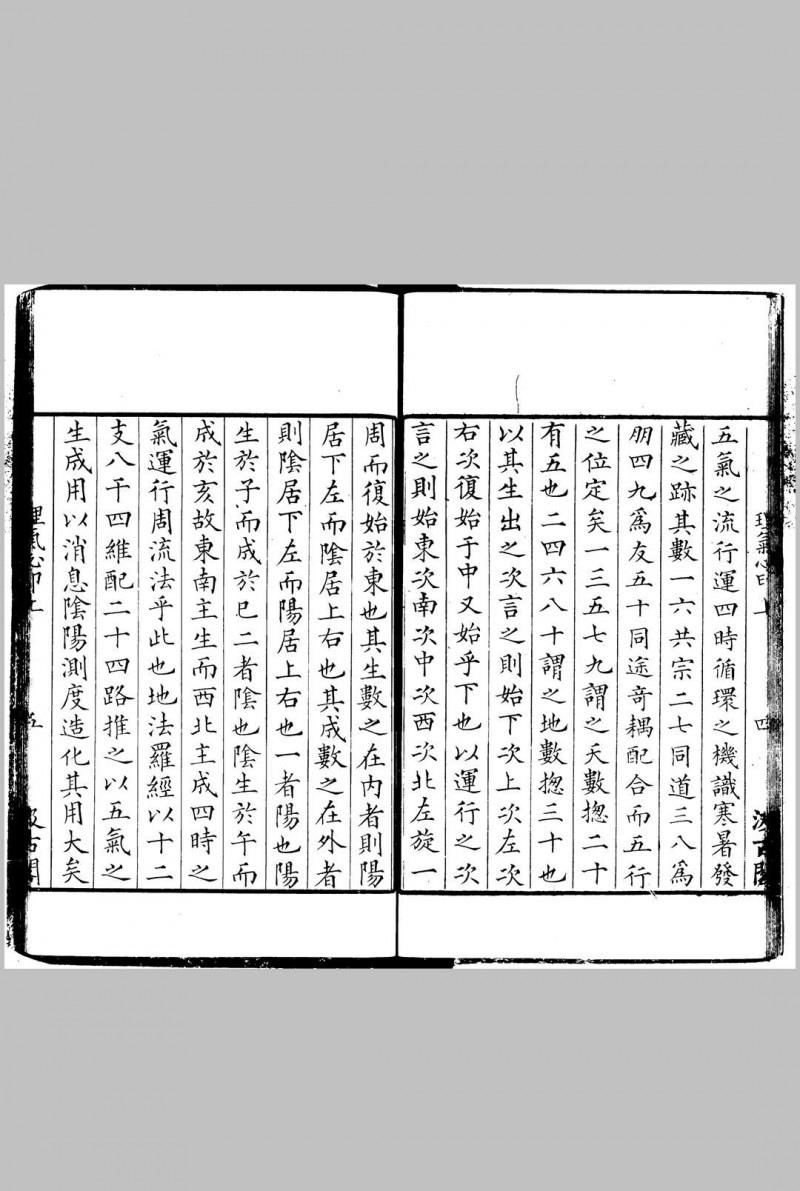 理氣心印上
四
汲古閣
五氣之流行運四時循環之機識寒暑發
藏之跡其數一六共宗二七同道三八爲
朋四九爲友五十同途奇耦配合而五行
之位定矣一三五七九謂之天數揔二十
有五也二四六八十謂之地數揔三十也
以其生出之次言之則始下次上次左次
右次復始于中又始乎下也以運行之次
言之則始東次南次中次西次北左旋一
周而復始於東也其生數之在內者則陽
居下左而陰居上右也其成數之在外者
則陰居下左而陽居上右也一者陽也陽
生於子而成於巳二者陰也陰生於午而
成於亥故東南主生而西北主成四時之
氣運行周流法乎此也地法羅經以十二
支八干四維配二十四路推之以五氣之
生成用以消息陰陽測度造化其用大矣
理氣心印上
五
汲古閣